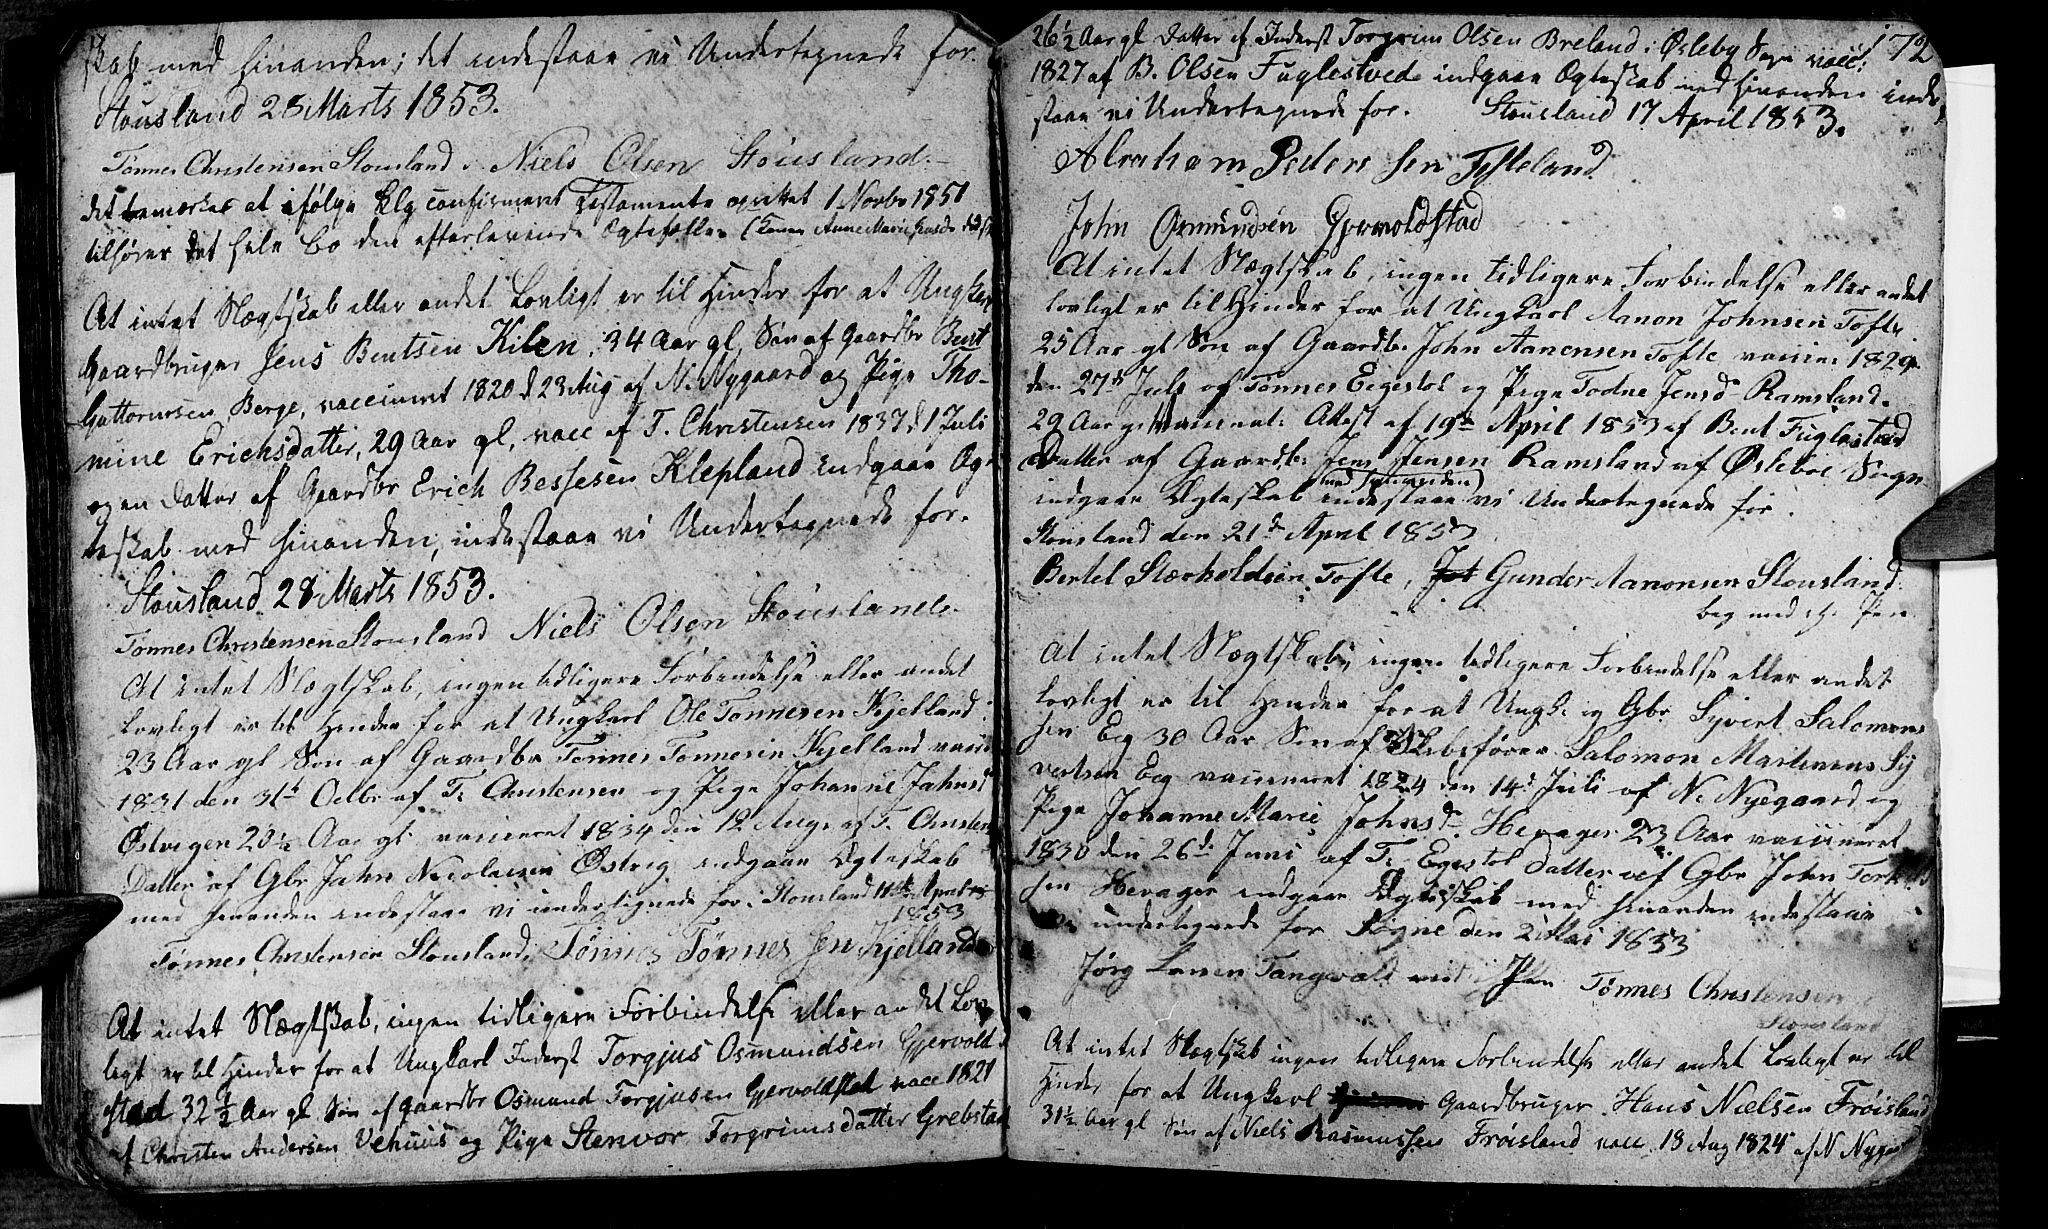 skab med hinanden; det indestaae vi Undertegnede for.
Stousland 28 Marts 1853.
Tønnes Christensen Stousland. Niels Olsen Stousland.
det bemærkes at ifølge Klg confirmeret Testamente oprettet 1 Novbr 1851
tilhører det hele bo den efterlevende Ægtefælle (Konen Anne Marie
At intet Slægtskab eller andet Lovligt er til Hinder for at Ungkarl
Gaardbruger Jens Bentsen Kilen, 34 Aar gl, Søn af Gaardbr Bent
Guttormsen Berge, vaccineret 1820 d 23 Aug af N. Nygaard og Pige Tho-
mine Erichsdatter, 29 Aar gl, vacc af T. Christensen 1837 d 1 Juli
og en Datter af Gaardbr Erich Bessesen Klepland indgaae Æg-
teskab med hinanden, indestaae vi Undertegnede for.
Stousland. 28 Marts 1853.
Tønnes Christensen Stousland Niels Olsen Stousland.
At intet Slægtskab, ingen tidligere Forbindelse eller andet
Lovligt er til Hinder for at Ungkarl Ole Tønnesen Kjelland
23 Aar gl Søn af Gaardbr Tønnes Tønnesen Kjelland vacci
1831 den 31te Octbr af T. Christensen og Pige Johanne Jahnsd
Østvigen 20½ Aar gl. vaccineret 1834 den 12 Aug. af T. Christens
Datter af Gbr Jahn Nicolaisen Østvig indgaae Ægteskab
med hinanden indestaae vi underteignede for. Stousland 11te April
1853
Tønnes Christensen Stousland. Tønnes Tønnes sen Kjelland
At intet Slægtskab, ingen tidligere Forbindelse eller andet Lov
ligt er til Hinder for at Ungkarl Inderst Torgjus Osmundsen Gjervold
stad 32½ Aar gl Søn af Gaardbr Osmund Torgjusen Gjervoldstad vacc 1821
af Christen Andersen Vehuus og Pige Stenvor Torgrimsdatter Grebstad
172
26½ Aar gl Datter af Inderst Torgrim Olsen Breland i Øsleby Sogn vacc:
1827 af B. Olsen Fuglestvedt indgaae Ægteskab med hinanden inde
staae vi Undertegnede for. Stousland 17 April 1853.
Abraham Peders sen Tofteland
John Osmundsen Gjervoldstad
At intet Slægtskab, ingen tidligere Forbindelse eller andet
lovligt er til Hinder for at Ungkarl Aanon Johnsen Tofte
25 Aar gl Søn af Gaardb. John Aanensen Tofte vaccine 1829
den 27de Juli af Tønnes Egestol og Pige Todne Jensd Ramsland.
29 Aar gl Attest af 19de April 1853 af Bent Fuglestvedt
Datter af Gaardb. Jens Jensen Ramsland af Øslebøe Sogn
indgaae Ægteskab (med hinanden) indestaae vi Undertegnede for.
Stousland den 21de April 1853
Bertel Stærholdsen Tofte, Gunder Aanonsen Stousland.
beg med ih. Pen
At intet Slægtskab, ingen tidligere Forbindelse eller andet
lovligt er til Hinder for at Ungk. og Gbr. Syvert Salomons
sen Eeg 30 Aar Søn af Skibsfører Salomon Martinius Sy
vertsen Eeg vaccineret 1824 den 14de Juli af N. Nyegaard og
Pige Johanne Marie Johnsd. Hevager 23 Aar vaccineret
1830 den 26de Juni af T. Egestol Datter af Gbr John Terkels
sen Hevager indgaae Ægteskab med hinanden indestaae
undertegnede for Søgne den 2 Mai 1853
Jørg Larsen Tangvald med Pen Tønnes Christensen
Stousland
At intet Slægtskab ingen tidligere Forbindelse eller andet Lovligt er til
Hinder for at Ungkarl Gaardbruger Hans Nielsen Frøisland
31½ Aar gl Søn af Niels Rasmussen Frøisland vacc. 18 Aug 1824 af N Nygaard